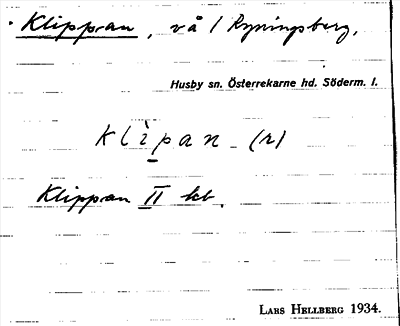 Klippran, vå / Ryningsberg,
Husby sn. Österrekarne hd. Söderm. l.
klìpan (r)
Klippran II kb.
LARS HELLBERG 1934.